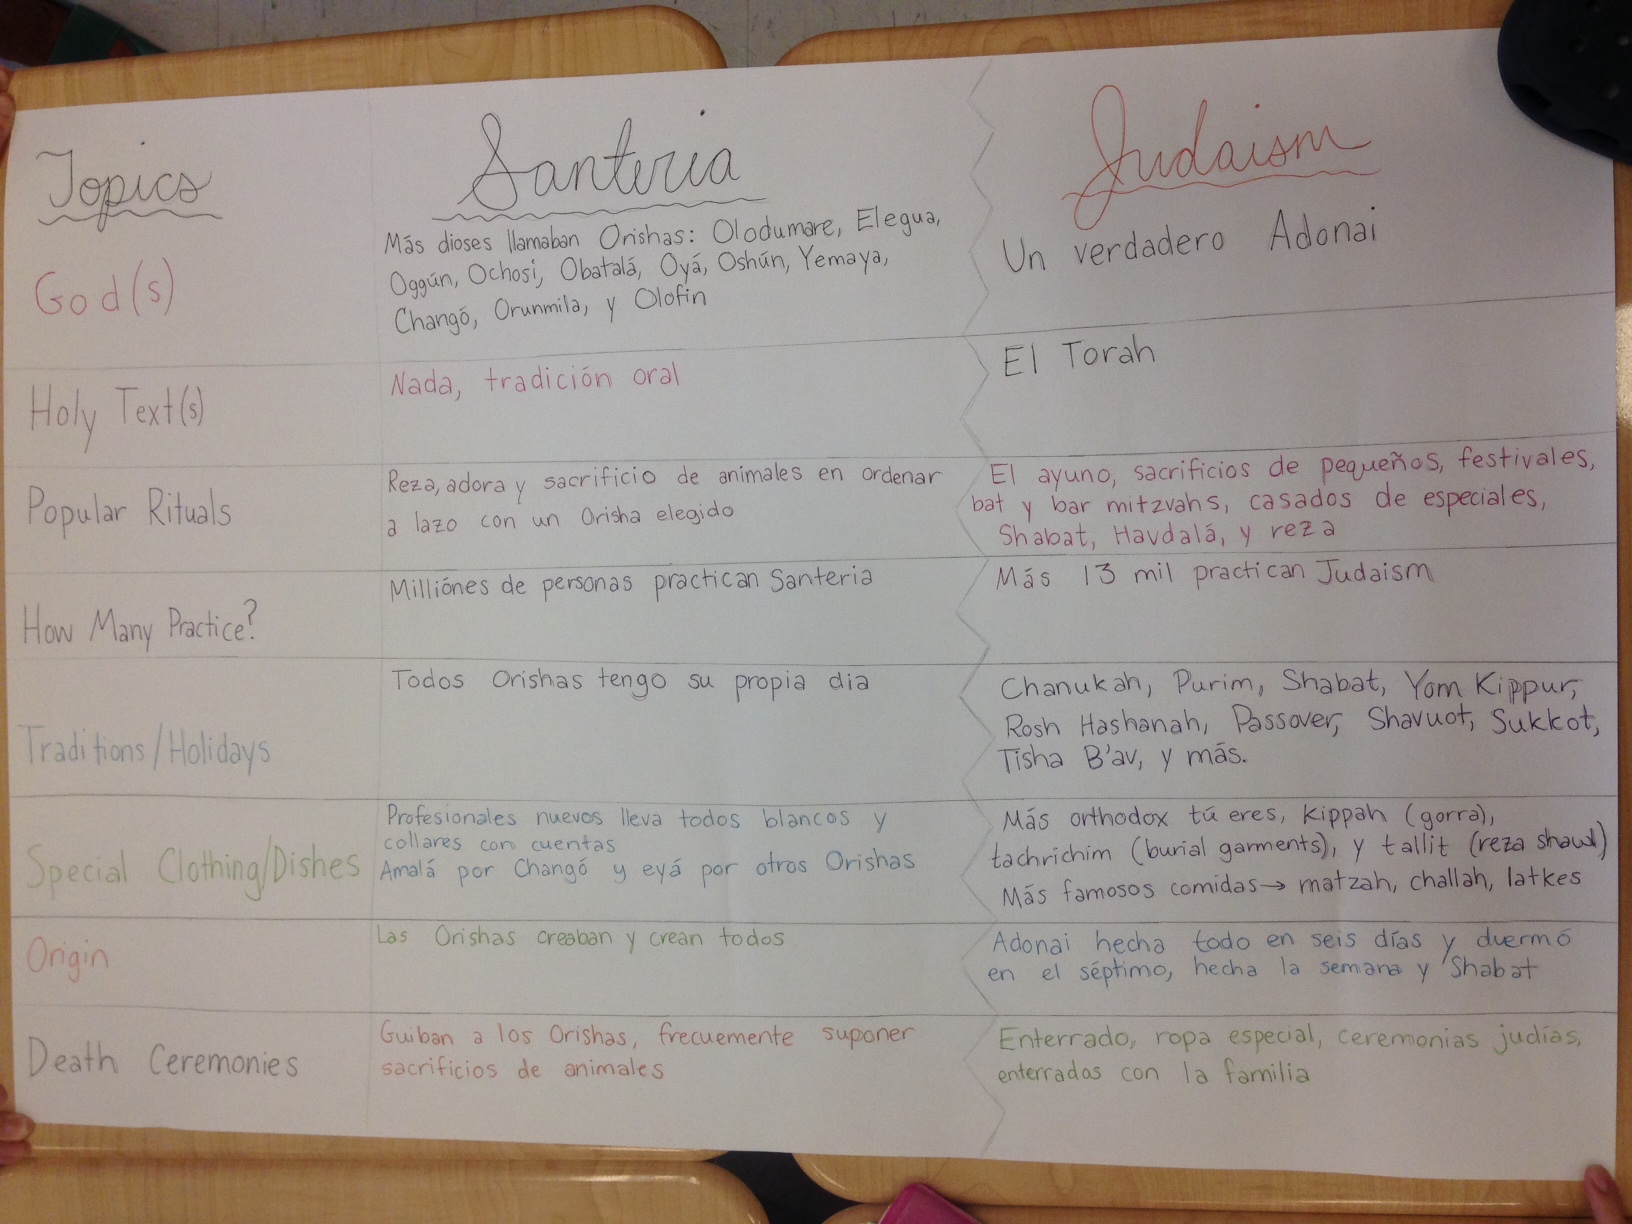 Topics
Santeria
Judaism
God(s)
Más dioses llamaban Orishas: Olodumare, Elegua,
Oggún, Ochosi, Obatalá, Oyá, Oshún, Yemaya,
Changó, Orunmila, y Olofin
Un verdadero Adonai
Holy Text(s)
Nada, tradición oral
El Torah
Popular Rituals
Reza, adora y sacrificio de animales en ordenar
a lazo con un Orisha elegido
El ayuno, sacrificios de pequeños, festivales,
bat y bar mitzvahs, casados de especiales,
Shabat, Havdalá, y reza
How Many Practice?
Milliónes de personas practican Santeria
Más 13 mil practican Judaism
Traditions/Holidays
Todos Orishas tengo su propia dia
Chanukah, Purim, Shabat, Yom Kippur,
Rosh Hashanah, Passover, Shavuot, Sukkot,
Tisha B'av, y más.
Special Clothing/Dishes
Profesionales nuevos lleva todos blancos y
collares con cuentas
Amalá por Changó y eyá por otros Orishas
Más orthodox tú eres, kippah (gorra),
tachrichim (burial garments), y tallit (reza shawl)
Más famosos comidas→ matzah, challah, latkes
Origin
Las Orishas creaban y crean todos
Adonai hecha todo en seis días y duermó
en el séptimo, hecha la semana y Shabat
Death Ceremonies
Guiban a los Orishas, frecuemente suponer
sacrificios de animales
Enterrado, ropa especial, ceremonias judías,
enterrados con la familia